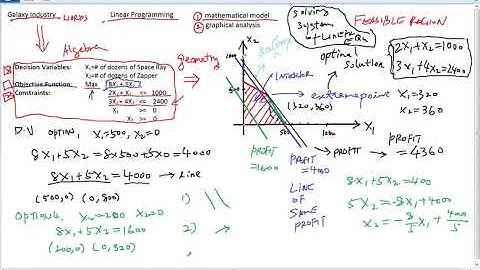 Galaxy Industry WORDS Linear Programming
1 mathematical model
2 graphical analysis
Algebra
Decision Variables: X₁=# of dozens of Space Ray
X₂=# of dozens of Zapper
Objective Function: Max 8X₁ + 5X₂
Constraints: 2X₁ + 1X₂ <= 1000
3X₁ + 4X₂ <= 2400
X₁ >= 0
X₂ >= 0
geometry
Solving System of Linear Eqs
FEASIBLE REGION
optimal Solution
2X₁+X₂=1000
3X₁+4X₂=2400
X₁=320
X₂=360
PROFIT
= 4360
X₂
1000
600
500
1000
X₁
INTERIOR
extreme point
(320,360)
→ PROFIT
PROFIT =1600
PROFIT = 4000
LINE OF SAME PROFIT
D.V. option1 X₁=500, X₂=0
8X₁+5X₂ = 8x500+5x0 = 4000
8X₁+5X₂ = 4000 → line
(500,0) (0,800)
option2 X₁=200 X₂=0
8X₁+5X₂ = 1600
(200,0) (0,320)
1)
2)
8X₁+5X₂=400
5X₂=-8X₁+4000
X₂=-8/5X₁+4000/5